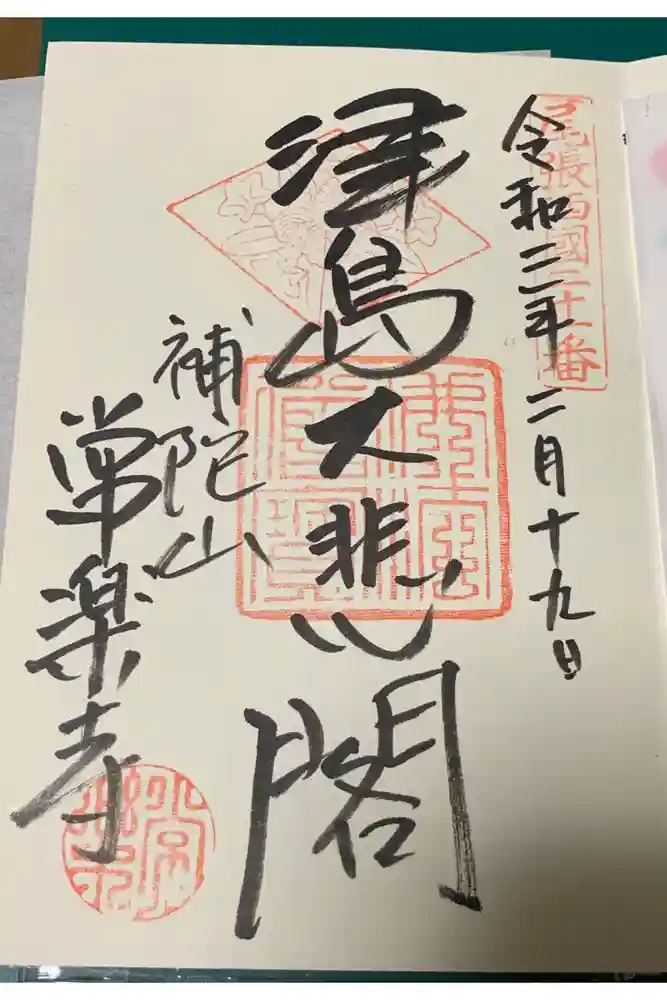 尾張西國二十一番
令和三年二月十九日
津島大悲閣
補陀山
常楽寺